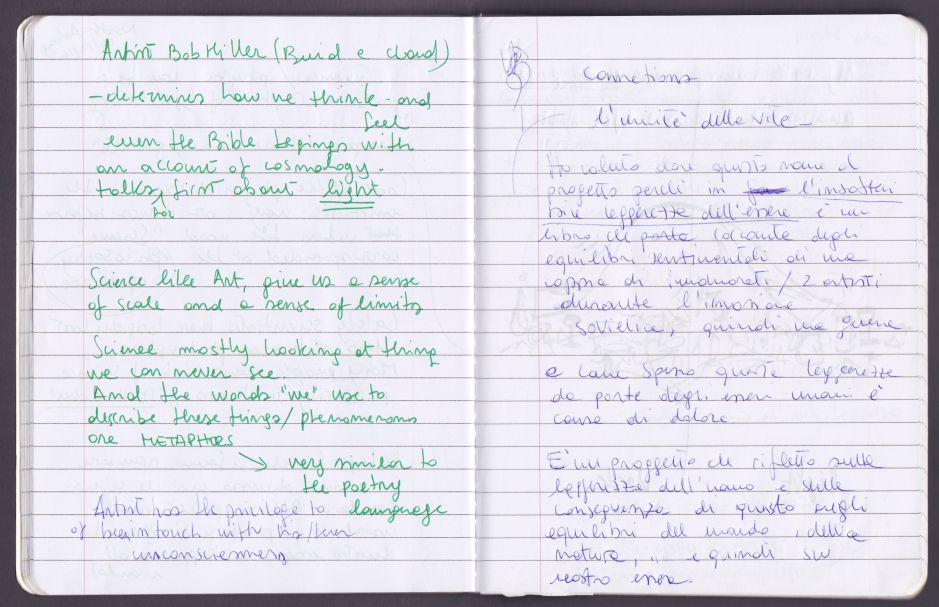 Artist Bob Miller (Build a cloud)
– determines how we think and
feel
even the Bible begings with
an account of cosmology.
talks first about light
for
Science like Art, give us a sense
of scale and a sense of limits
Science mostly looking at thing
we can never see.
And the words "we" use to
describe these things/phenomenons
are METAPHORS
→ very similar to
the poetry
language
Artist has the privilege to
of being touch with his/her
unconsciousness
Connetions
l'unicità della vita –
Ho voluto dare questo nome al
progetto perché in l'insosteni
bile leggerezza dell'essere è un
libro che porta toccante degli
equilibri sentimentali di una
coppia di innamorati / 2 artisti
durante l'invasione
sovietica, quindi una guerra
e come spesso questa leggerezza
da parte degli esseri umani è
causa di dolore.
E' un proggetto che rifletto sulla
leggerezza dell'uomo e sulle
conseguenza di questo sugli
equilibri del mondo, della
natura, .. e quindi sul
nostro essere.